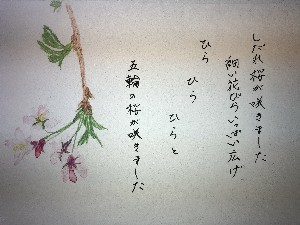 しだれ桜が咲きました
細い花びらいっぱい広げ
ひら
ひら
ひらと
五輪の桜が咲きました